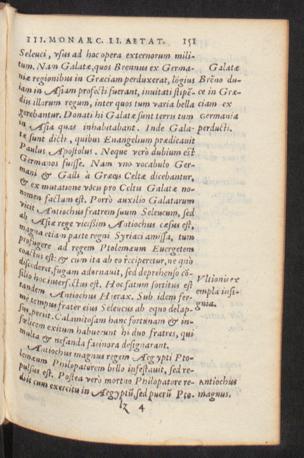 III. MONARC. II. AETAT. 151
Seleuci, vsus ad hoc opera externorum mili-
tum. Nam Galatæ, quos Brennus ex Germa-
niæ regionibus in Græciam perduxerat, lõgius
iam in Asiam profecti fuerant, inuitati stipē-
diis illorum regum, inter quos tum varia bella
gerebantur. Donati hi Galatæ sunt terris tum
in Asia quas inhabitabant. Inde Gala-
tæ sunt dicti, quibus Euangelium prædicauit
Paulus Apostolus. Neque verò dubium est
Germanos fuisse. Nam vno vocabulo Ger-
mani & Galli à Græcis Celtæ dicebantur,
& ex mutatione vocũ pro Celtu Galatæ no-
men factum est. Porrò auxilio Galatarum
vicit Antiochus fratrem suum Seleucum, sed
ab Asiæ rege vicissim Antiochus cæsus est,
magna etiam parte regni Syriaci amissa, tum
profugere ad regem Ptolemæum Euergetem
coactus est: & cum ita ab eo reciperetur, ne quò
discederet, fugam adornauit, sed deprehenso cō-
silio hoc interfectus est. Hoc fatum sortitus est
tandem Antiochus Hierax. Sub idem fer-
mè tempus frater eius Seleucus ab equo delap-
sus, periit. Calamitosam hanc fortunam & in-
felicem exitum habuerunt hi duo fratres, qui
multa & nefanda facinora designarant.
Antiochus magnus regem Aegypti Pto-
lemæum Philopatorem bello infestauit, sed re-
pulsus est. Postea verò mortuo Philopatore re-
diit cum exercitu in Aegyptũ, sed puerũ Pto-
iz 4
Galatæ
Brēno du-
ce in Græ-
ciam ex
Germania
perducti.
Vltionis ex-
empla insi-
gnia.
Antiochus
magnus.